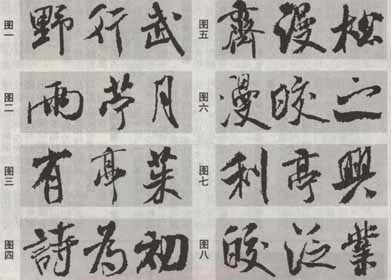 图一
野行武
图二
雨月
图三
有亭菜
图四
詩為初
图五
齊漫
图六
漫皎
图七
利亭興
图八
皎泛業